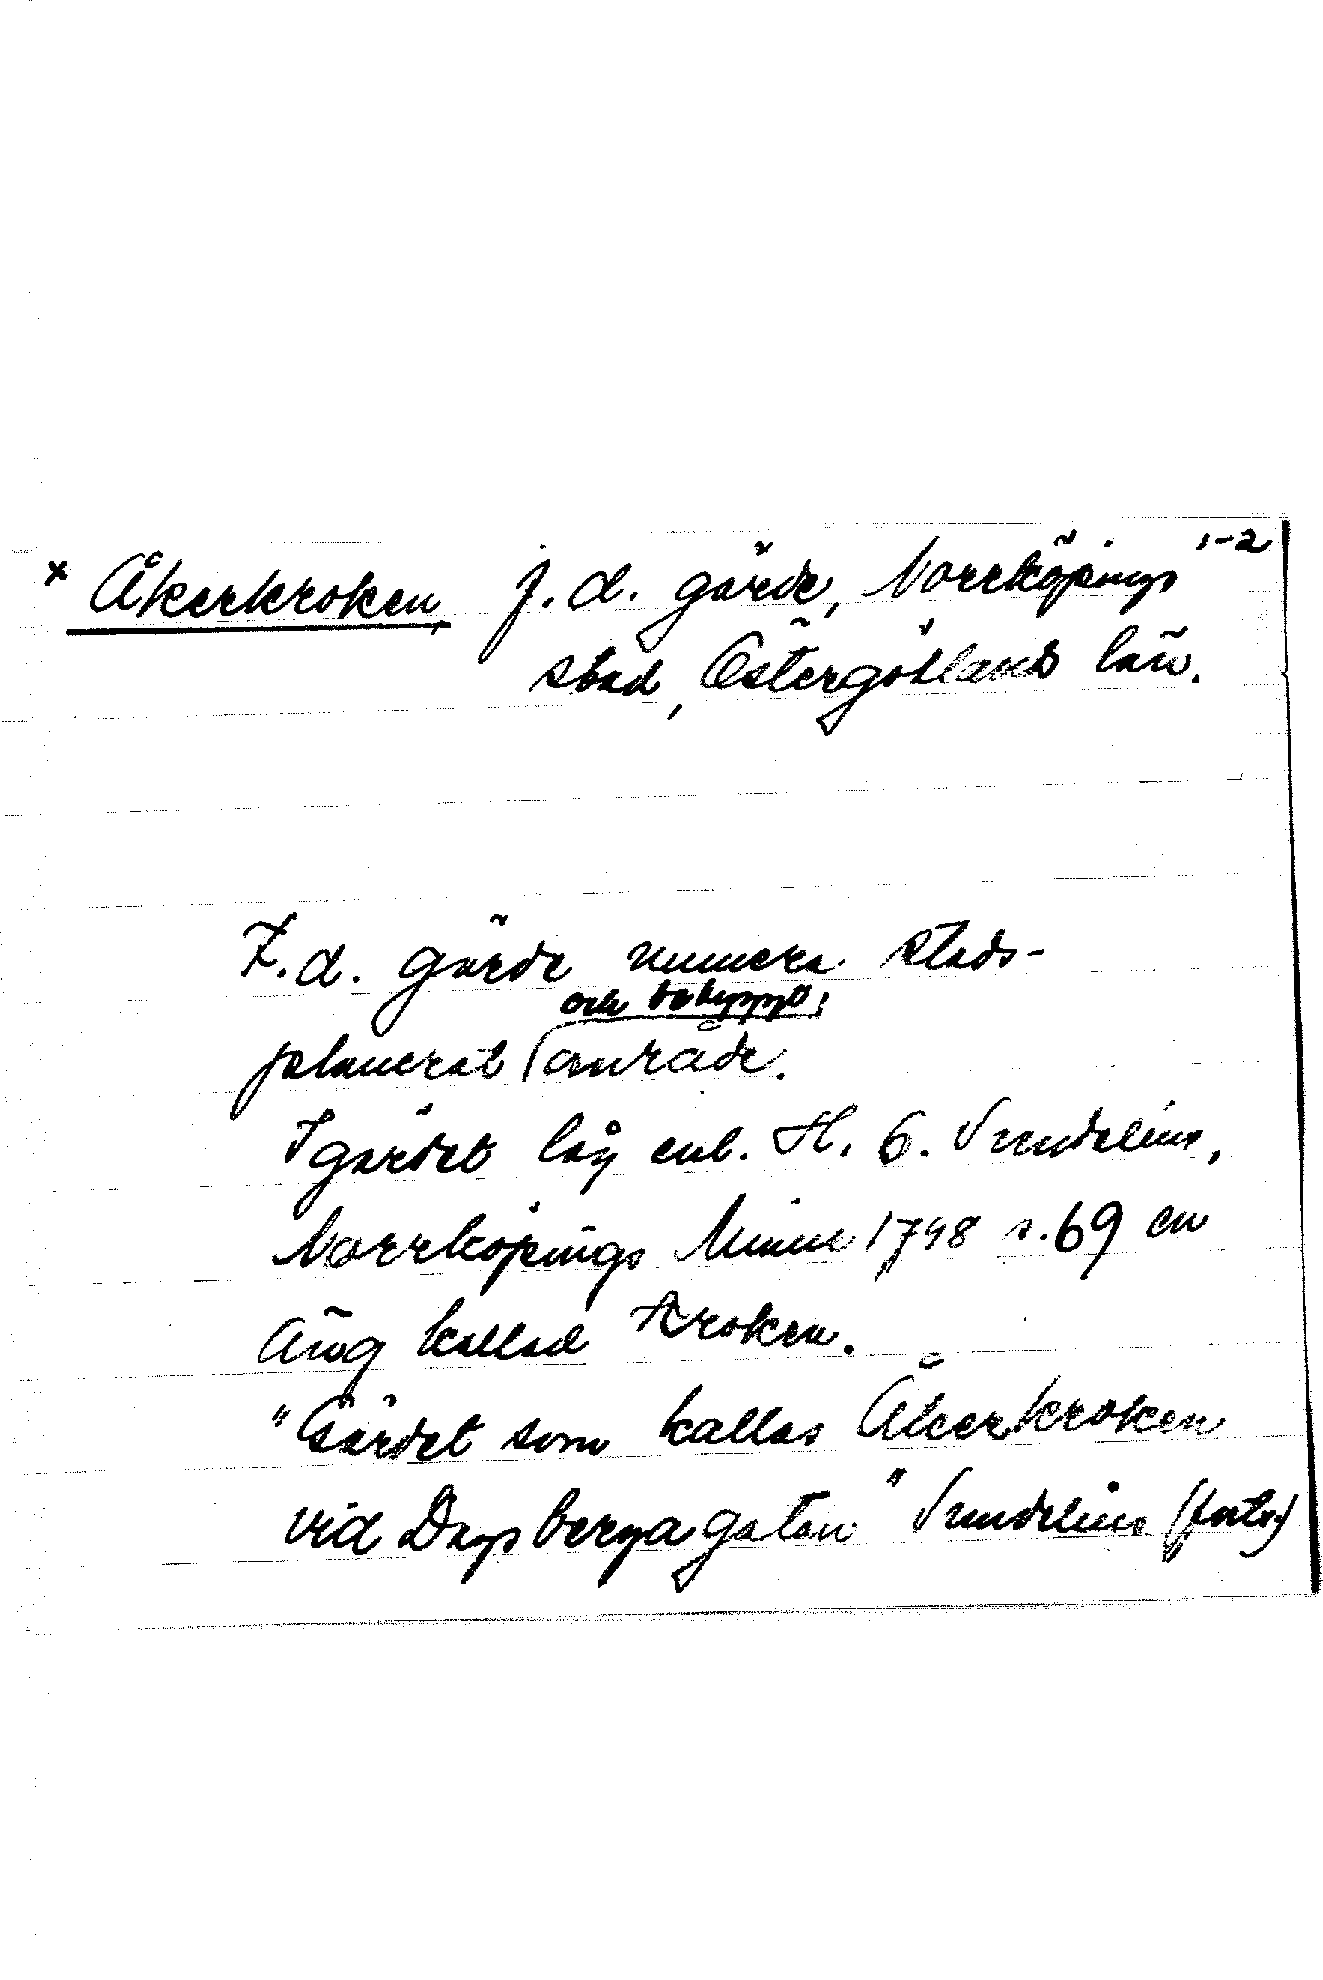 1-2
x Åkerkroken, f.d. gärde, Norrköpings
stad, Östergötlands län.
F.d. gärde numera stads-
och bebyggt
planerat område.
I gärdet låg enl. H. G. Sundelius,
Norrköpings Minne 1798 s. 69 en
äng kallad Kroken.
"Gärdet som kallas Åkerkroken
vid Dagsbergagatan" Sundelius (forts)